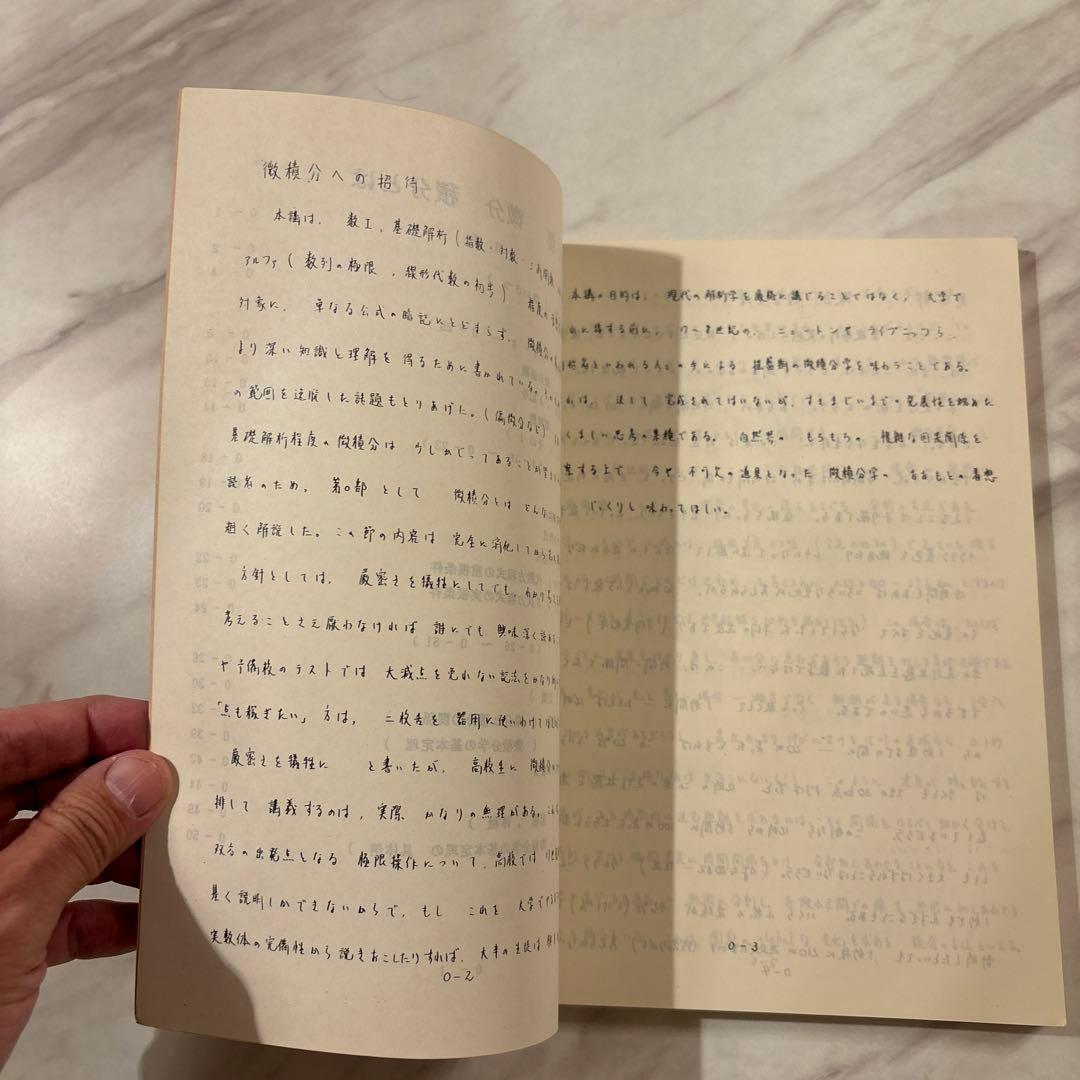 微積分への招待
本講は、数Ⅰ，基礎解析（指数・対数・三角関数
アルファ（数列の極限，線形代数の初歩）程度の
対象に、単なる公式の暗記にとどまらず、微積分の
より深い知識と理解を得るために書かれている。
の範囲を逸脱した話題もとりあげた。（偏微分など）
基礎解析程度の微積分は 少しかじってあることが
読者のため、第0部として 微積分とは どんな
粗く解説した。この節の内容は 完全に消化してから
方針としては、厳密さを犠牲にしてでも、わかり
考えることさえ厭わなければ 誰にでも 興味深く読める
や予備校のテストでは 大減点を免れない記法をかなり
「点も稼ぎたい」方は、二枚舌を 器用に使いわけて
厳密さを犠牲に と書いたが、高校生に 微積分
排して 講義するのは，実際 かなりの無理がある。
双方の出発点となる 極限操作について、高校では
基く説明しかできないからで、もし これを 大学で
実数体の完備性から説きおこしたりすれば、大半の生徒は
0-2
本講の目的は、現代の解析学を厳格に講じることではなく、大学で
に接する前に、17〜8世紀の、ニュートンや ライプニッツら、
といわれる人々の手による 揺籃期の微積分学を味わうことである。
れは、決して 完成されてはいないが、すさまじいまでの発展性を秘めた
くましい思考の集積である。自然界の もろもろの 複雑な因果関係を
察する上で 今や 不可欠の道具となった 微積分学の おおもとの着想
じっくりと 味わってほしい。
0-3